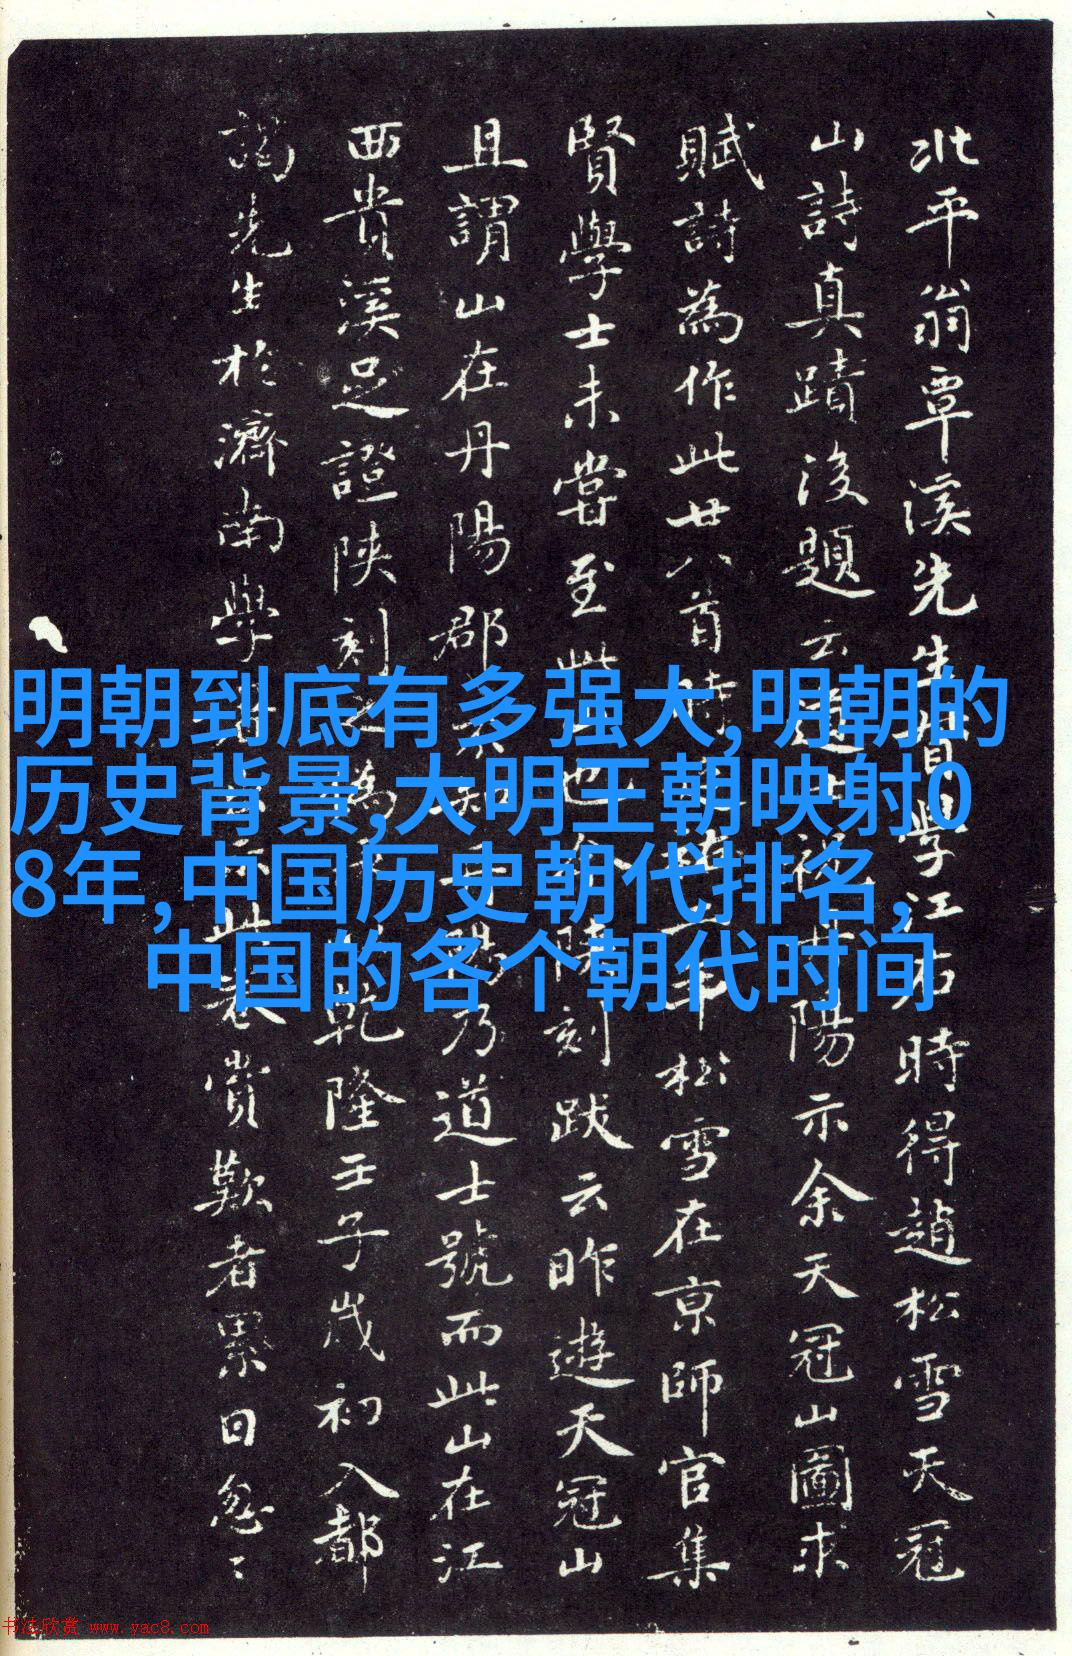 北平翁覃溪先生督學江右時得趙松雪天冠
山詩真蹟後題云
陽示余天冠山圖求
賦詩為作此廿八首時
松雪在京師官集
賢學士未嘗至此
刻跋云昨遊天冠山
且謂山在丹陽郡
乃道士號而此山在江
西貴溪足證陝刻之
為
乾隆壬子歲初入都
謁先生於濟南學
此表賞歎者累日忽〻
明朝到底有多强大,明朝的
历史背景,大明王朝映射0
8年,中国历史朝代排名,
中国的各个朝代时间
书法欣赏 www.yac8.com